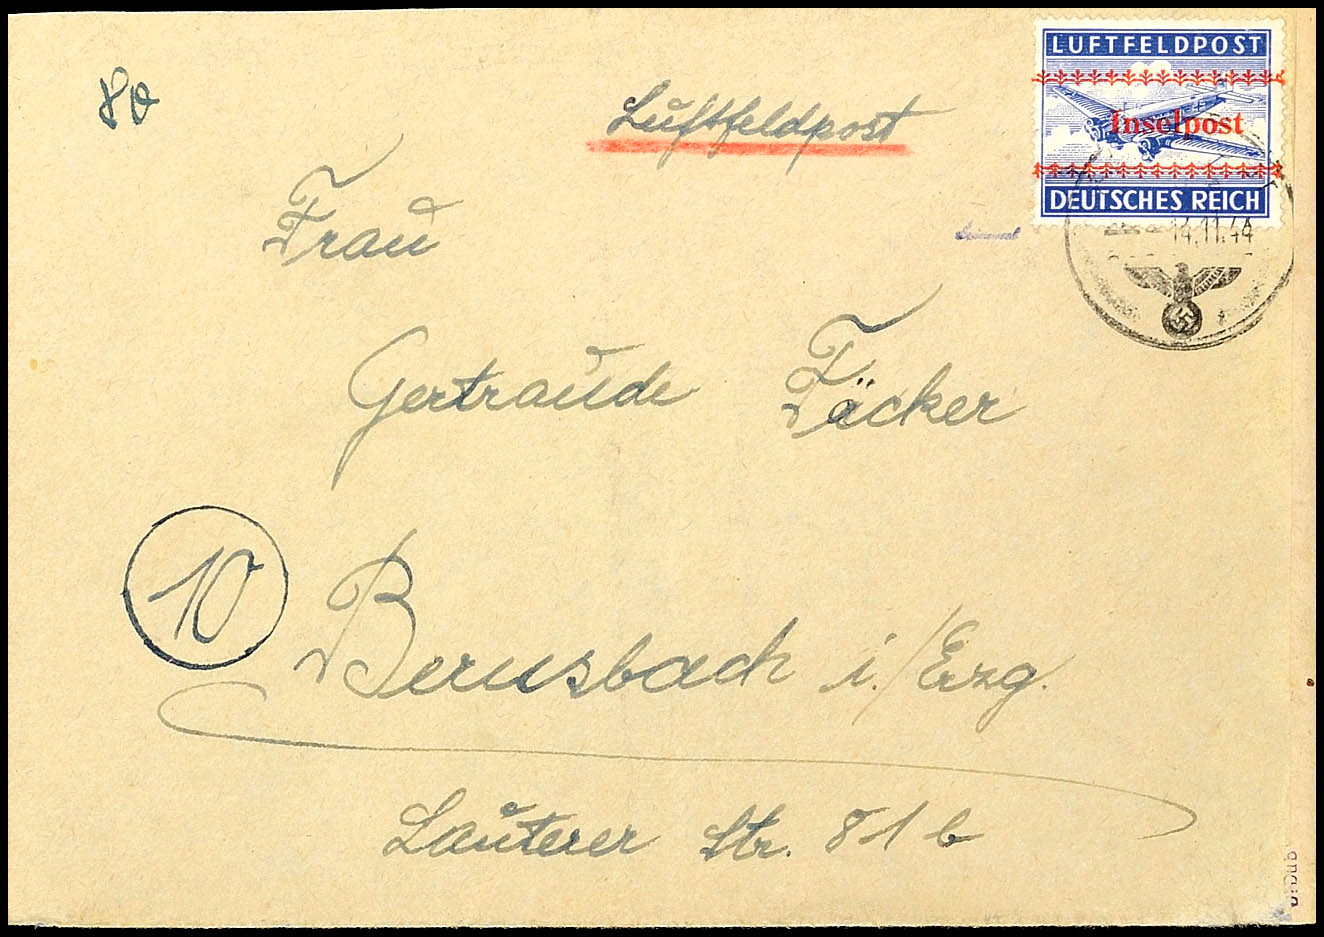 80
Luftfeldpost
LUFTFELDPOST
Inselpost
DEUTSCHES REICH
14.11.44
Frau
Gertraude Fäcker
10
Bernsbach i./Erzg.
Lauterer Str. 81 b